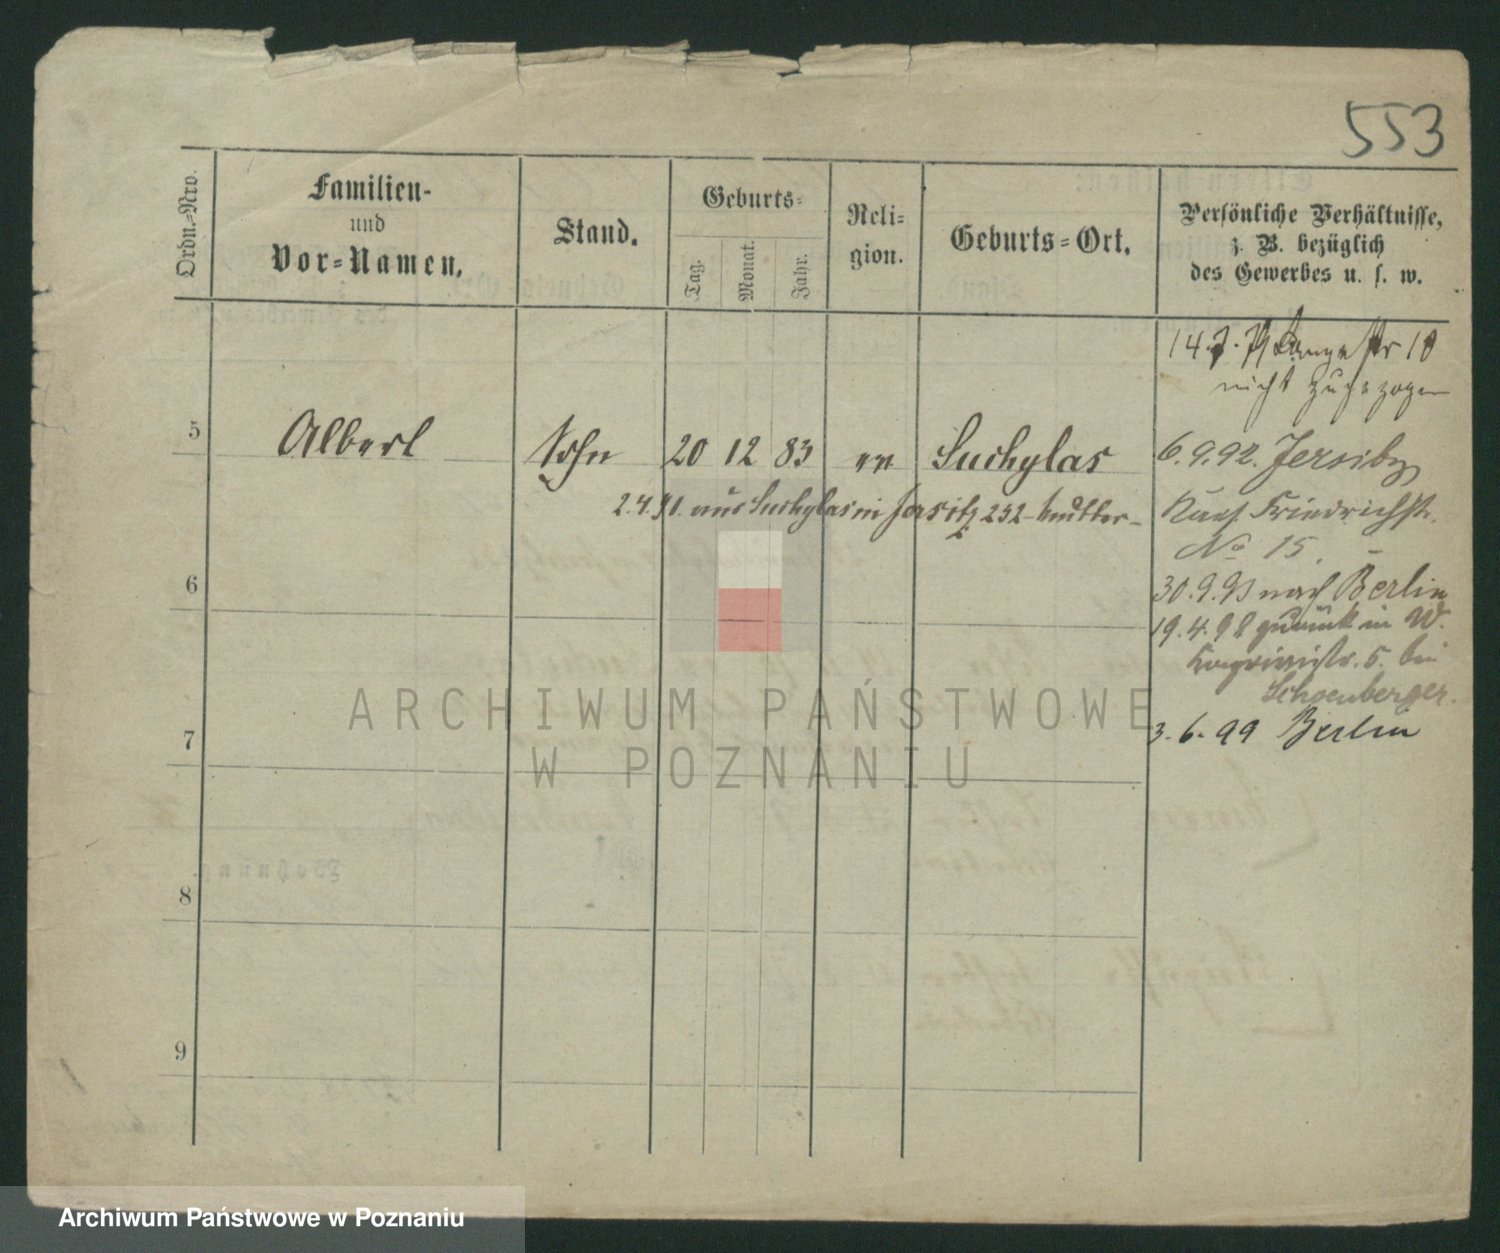 553
Ordn.-Nro.
Familien-
und
Vor-Namen.
Stand.
Geburts-
Tag.
Monat.
Jahr.
Reli-
gion.
Geburts-Ort.
Persönliche Verhältnisse,
z. B. bezüglich
des Gewerbes u. s. w.
14.7. Langestr 10
nicht zugezogen
5 Albert Sohn 20 12 83 ev Suchylas
2.4.91. aus Suchylas in Jersitz 252 Mutter-
6.9.92. Jersitz
Kais. Friedrichstr.
No 15.
30.9.93 nach Berlin
19.4.98 zurück in W.
5. bei
Schoenberger.
3.6.99 Berlin
6
7
8
9
Wohnung.
ARCHIWUM PAŃSTWOWE
W POZNANIU
Archiwum Państwowe w Poznaniu